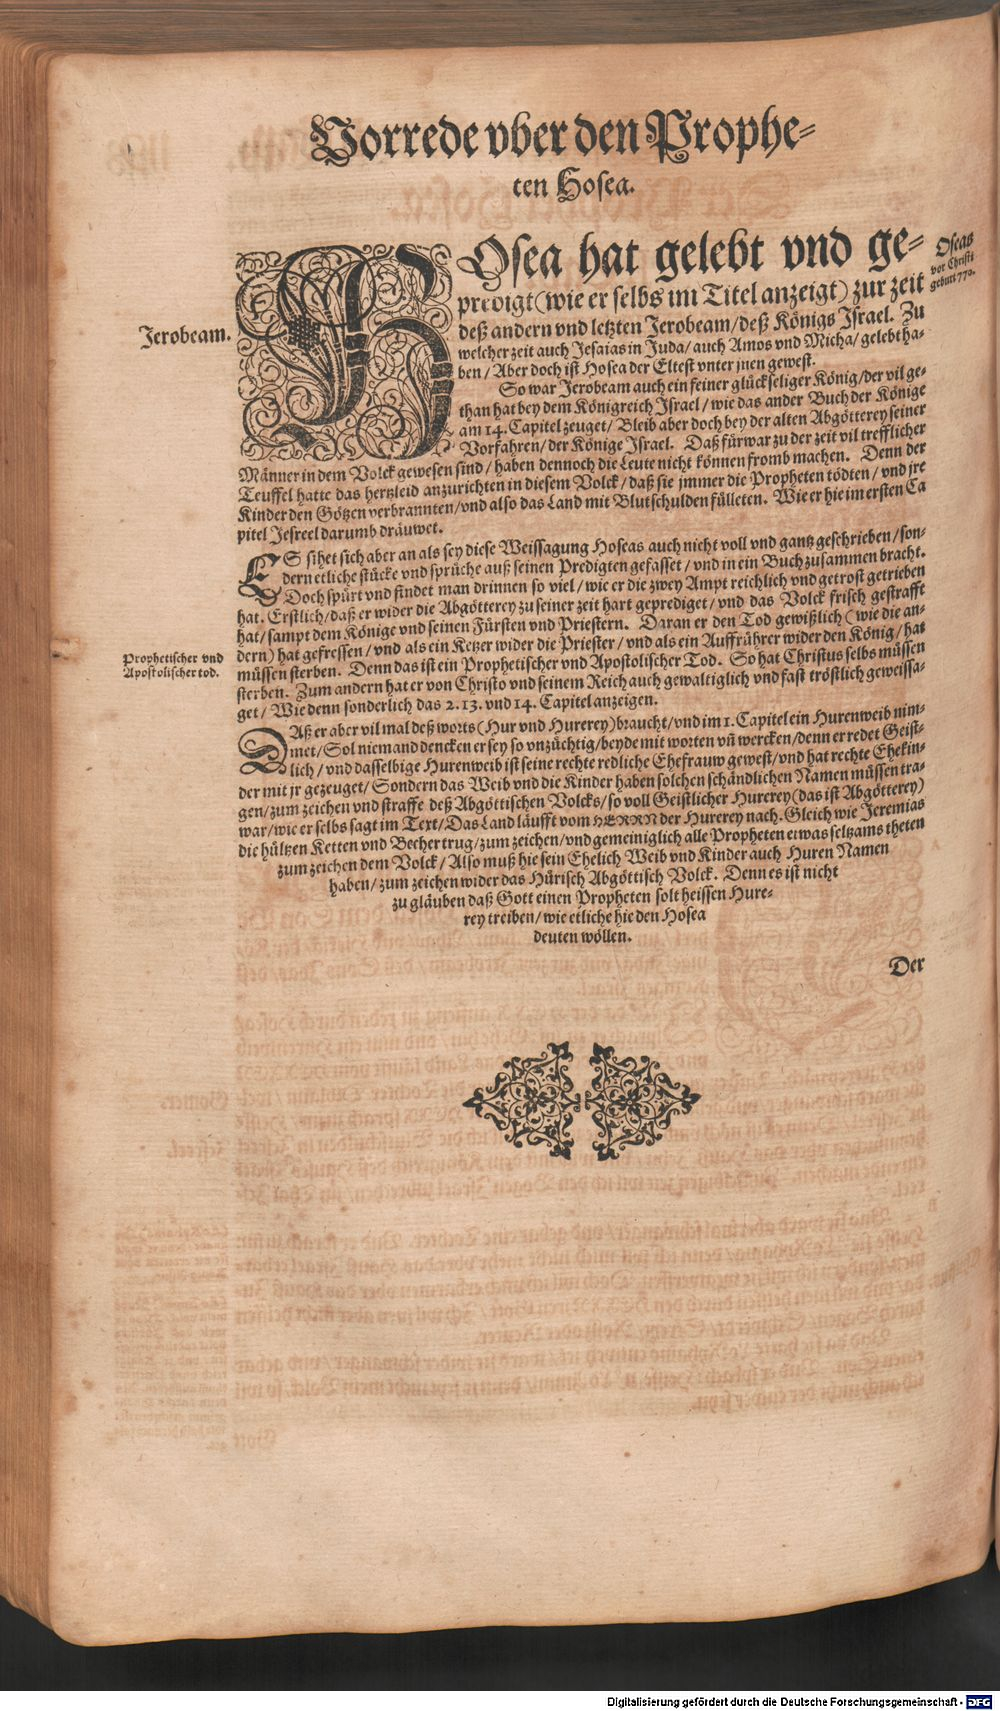 Vorrede vber den Prophe⸗
ten Hosea.
HOsea hat gelebt vnd ge⸗
predigt (wie er selbs im Titel anzeigt) zur zeit
deß andern vnd letzten Jerobeam / deß Königs Israel. Zu
welcher zeit auch Jesaias in Juda / auch Amos vnd Micha / gelebt ha⸗
ben / Aber doch ist Hosea der Eltest vnter jnen gewest.
Oseas
vor Christi
geburt 770.
Jerobeam.
So war Jerobeam auch ein feiner glückseliger König / der vil ge⸗
than hat bey dem Königreich Israel / wie das ander Buch der Könige
am 14. Capitel zeuget / Bleib aber doch bey der alten Abgötterey seiner
Vorfahren / der Könige Israel. Daß fürwar zu der zeit vil trefflicher
Männer in dem Volck gewesen sind / haben dennoch die Leute nicht können fromb machen. Denn der
Teuffel hatte das hertzleid anzurichten in diesem Volck / daß sie jmmer die Propheten tödten / vnd jre
Kinder den Götzen verbrannten / vnd also das Land mit Blutschulden fülleten. Wie er hie im ersten Ca
pitel Jesreel darumb dräuwet.
ES sihet sich aber an als sey diese Weissagung Hoseas auch nicht voll vnd gantz geschrieben / son⸗
dern etliche stücke vnd sprüche auß seinen Predigten gefasset / vnd in ein Buch zusammen bracht.
Doch spürt vnd findet man drinnen so viel / wie er die zwey Ampt reichlich vnd getrost getrieben
hat. Erstlich / daß er wider die Abgötterey zu seiner zeit hart geprediget / vnd das Volck frisch gestrafft
hat / sampt dem Könige vnd seinen Fürsten vnd Priestern. Daran er den Tod gewißlich (wie die an⸗
dern) hat gefressen / vnd als ein Ketzer wider die Priester / vnd als ein Auffrührer wider den König / hat
müssen sterben. Denn das ist ein Prophetischer vnd Apostolischer Tod. So hat Christus selbs müssen
sterben. Zum andern hat er von Christo vnd seinem Reich auch gewaltiglich vnd fast tröstlich geweissa⸗
get / Wie denn sonderlich das 2. 13. vnd 14. Capitel anzeigen.
Prophetischer vnd
Apostolischer tod.
DAß er aber vil mal deß worts (Hur vnd Hurerey) braucht / vnd im 1. Capitel ein Hurenweib nim⸗
met / Sol niemand dencken er sey so vnzüchtig / beyde mit worten vñ wercken / denn er redet Geist⸗
lich / vnd dasselbige Hurenweib ist seine rechte redliche Ehefrauw gewest / vnd hat rechte Ehekin⸗
der mit jr gezeuget / Sondern das Weib vnd die Kinder haben solchen schändlichen Namen müssen tra⸗
gen / zum zeichen vnd straffe deß Abgöttischen Volcks / so voll Geistlicher Hurerey (das ist Abgötterey)
war / wie er selbs sagt im Text / Das Land läufft vom HERRN der Hurerey nach. Gleich wie Jeremias
die hültzen Ketten vnd Becher trug / zum zeichen / vnd gemeiniglich alle Propheten etwas seltzams theten
zum zeichen dem Volck / Also muß hie sein Ehelich Weib vnd Kinder auch Huren Namen
haben / zum zeichen wider das Hürisch Abgöttisch Volck. Denn es ist nicht
zu gläuben daß Gott einen Propheten solt heissen Hure⸗
rey treiben / wie etliche hie den Hosea
deuten wöllen.
Der
Digitalisierung gefördert durch die Deutsche Forschungsgemeinschaft - DFG